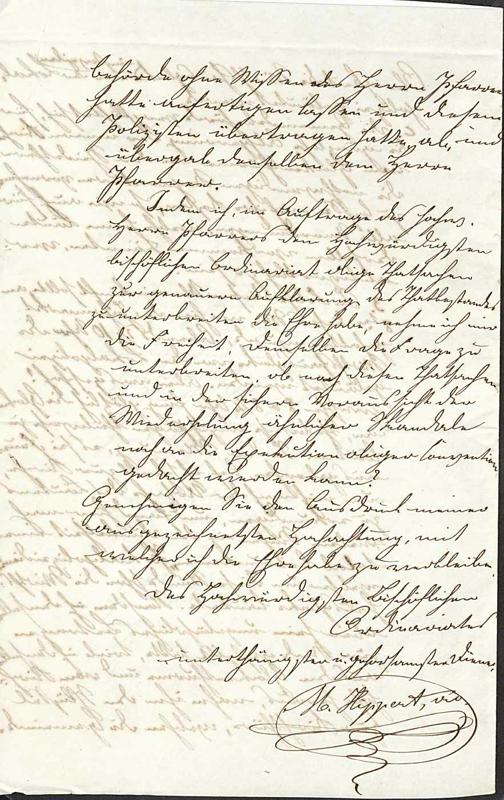 behörde ohne Wissen des Herrn Pfarrers
hatte anfertigen lassen und diesem
Polizisten übertragen hatte, ab, und
übergab denselben dem Herrn
Pfarrer.
Indem ich, im Auftrage des hochw.
Herrn Pfarrers dem Hochwürdigsten
bischöflichen Ordinariat obige Thatsachen
zur genauern Aufklärung des Thatbestandes
zu unterbreiten die Ehre habe, nehme ich mir
die Freiheit, demselben die Frage zu
unterbreiten, ob nach diesen Thatsachen
und in der sichern Voraussicht der
Wiederholung ähnlicher Skandale
noch an die Exekution obiger Convention
gedacht werden kann?
Genehmigen Sie den Ausdruck meiner
ausgezeichnetsten Hochachtung, mit
welcher ich die Ehre habe zu verbleiben
Des Hochwürdigsten Bischöflichen
Ordinariates
unterthänigster u. gehorsamster Diener,
M. Hippert, vic.